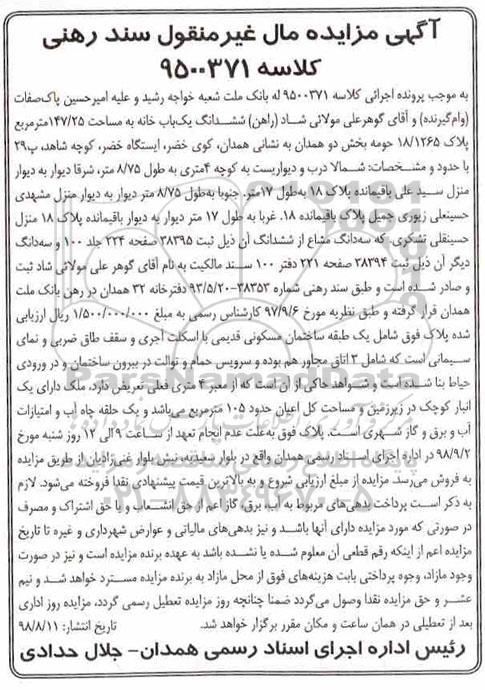 آگهی مزایده مال غیرمنقول سند رهنی
کلاسه ۹۵۰۰۳۷۱
به موجب پرونده اجرائی کلاسه ۹۵۰۰۳۷۱ له بانک ملت شعبه خواجه رشید و علیه امیرحسین پاک‌صفات
(وام‌گیرنده) و آقای گوهرعلی مولائی شاد (راهن) ششدانگ یک‌باب خانه به مساحت ۱۴۷/۲۵مترمربع
پلاک ۱۸/۱۲۶۵ حومه بخش دو همدان به نشانی همدان، کوی خضر، ایستگاه خضر، کوچه شاهد، پ۲۹
با حدود و مشخصات: شمالا درب و دیواریست به کوچه ۴متری به طول ۸/۷۵ متر، شرقا دیوار به دیوار
منزل سید علی باقیمانده پلاک ۱۸ به‌طول ۱۷متر. جنوبا به‌طول ۸/۷۵ متر دیوار به دیوار منزل مشهدی
حسینعلی زیوری جمیل پلاک باقیمانده ۱۸. غربا به طول ۱۷ متر دیوار به دیوار باقیمانده پلاک ۱۸ منزل
حسینقلی تشکری، که سه‌دانگ مشاع از ششدانگ آن ذیل ثبت ۳۸۳۹۵ صفحه ۲۲۴ جلد ۱۰۰ و سه‌دانگ
دیگر آن ذیل ثبت ۳۸۳۹۴ صفحه ۲۲۱ دفتر ۱۰۰ سند مالکیت به نام آقای گوهر علی مولائی شاد ثبت
و صادر شده است و طبق سند رهنی شماره ۳۸۳۵۳-۹۳/۵/۲۰ دفترخانه ۳۲ همدان در رهن بانک ملت
همدان قرار گرفته و طبق نظریه مورخ ۹۷/۹/۶ کارشناس رسمی به مبلغ ۱/۵۰۰/۰۰۰/۰۰۰ ریال ارزیابی
شده پلاک فوق شامل یک طبقه ساختمان مسکونی قدیمی با اسکلت آجری و سقف طاق ضربی و نمای
سیمانی است که شامل ۳ اتاق مجاور هم بوده و سرویس حمام و توالت در بیرون ساختمان و در ورودی
حیاط بنا شده است و شواهد حاکی از آن است که از معبر ۴ متری فعلی تعریض دارد، ملک دارای یک
انبار کوچک در زیرزمین و مساحت کل اعیان حدود ۱۰۵ مترمربع می‌باشد و یک حلقه چاه آب و امتیازات
آب و برق و گاز شهری است. پلاک فوق به‌علت عدم انجام تعهد از ساعت ۹الی ۱۲ روز شنبه مورخ
۹۸/۹/۲ در اداره اجرای اسناد رسمی همدان واقع در بلوار سعیدیه نبش بلوار غنی‌زادیان از طریق مزایده
به فروش می‌رسد. مزایده از مبلغ ارزیابی شروع و به بالاترین قیمت پیشنهادی نقدا فروخته می‌شود. لازم
به ذکر است پرداخت بدهی‌های مربوط به آب، برق، گاز اعم از حق انشعاب و یا حق اشتراک و مصرف
در صورتی که مورد مزایده دارای آنها باشد و نیز بدهی‌های مالیاتی و عوارض شهرداری و غیره تا تاریخ
مزایده اعم از اینکه رقم قطعی آن معلوم شده یا نشده باشد به عهده برنده مزایده است و نیز در صورت
وجود مازاد، وجوه پرداختی بابت هزینه‌های فوق از محل مازاد به برنده مزایده مسترد خواهد شد و نیم
عشر و حق مزایده نقدا وصول می‌گردد ضمنا چنانچه روز مزایده تعطیل رسمی گردد، مزایده روز اداری
بعد از تعطیلی در همان ساعت و مکان مقرر برگزار خواهد شد. تاریخ انتشار: ۹۸/۸/۱۱
رئیس اداره اجرای اسناد رسمی همدان- جلال حدادی